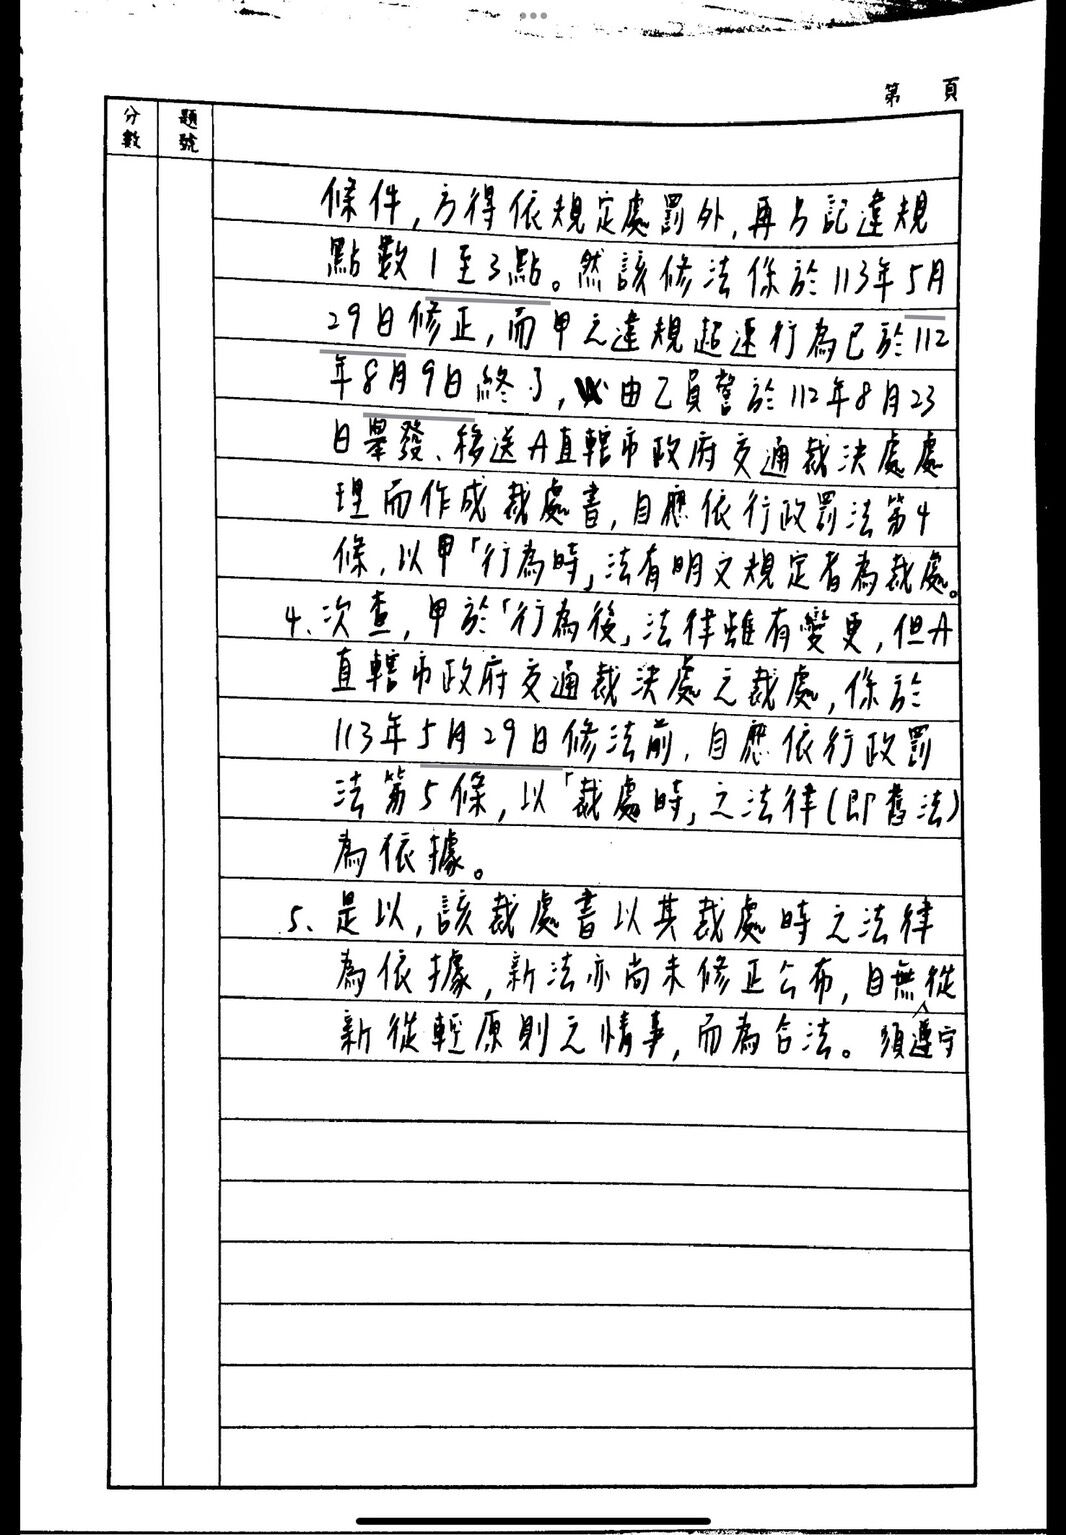 第 頁
分數
題號
條件,方得依規定處罰外,再另記違規
點數1至3點。然該修法係於113年5月
29日修正,而甲之違規超速行為已於112
年8月9日終了,由乙員警於112年8月23
日舉發、移送A直轄市政府交通裁決處處
理而作成裁處書,自應依行政罰法第4
條,以甲「行為時」法有明文規定者為裁處。
4、次查,甲於「行為後」法律雖有變更,但A
直轄市政府交通裁決處之裁處,係於
113年5月29日修法前,自應依行政罰
法第5條,以「裁處時」之法律(即舊法)
為依據。
5、是以,該裁處書以其裁處時之法律
為依據,新法亦尚未修正公布,自無須遵守從
新從輕原則之情事,而為合法。